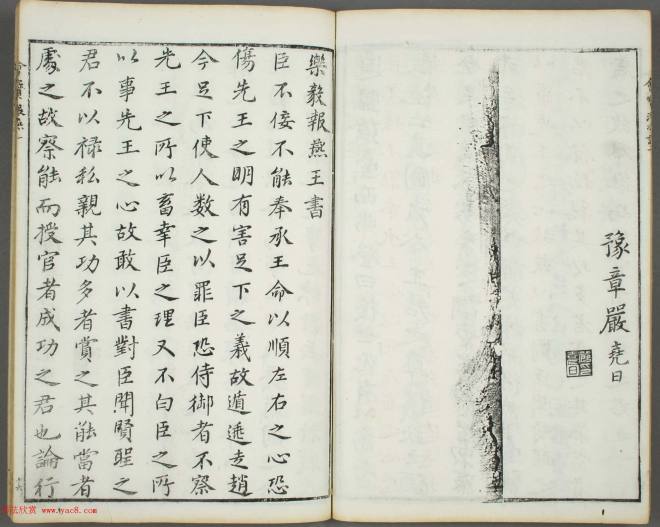 豫章嚴堯日
樂毅報燕王書
臣不佞不能奉承王命以順左右之心恐
傷先王之明有害足下之義故遁逃走趙
今足下使人數之以罪臣恐侍御者不察
先王之所以畜幸臣之理又不白臣之所
以事先王之心故敢以書對臣聞賢聖之
君不以祿私親其功多者賞之其能當者
處之故察能而授官者成功之君也論行
法欣赏 www.yac8.com